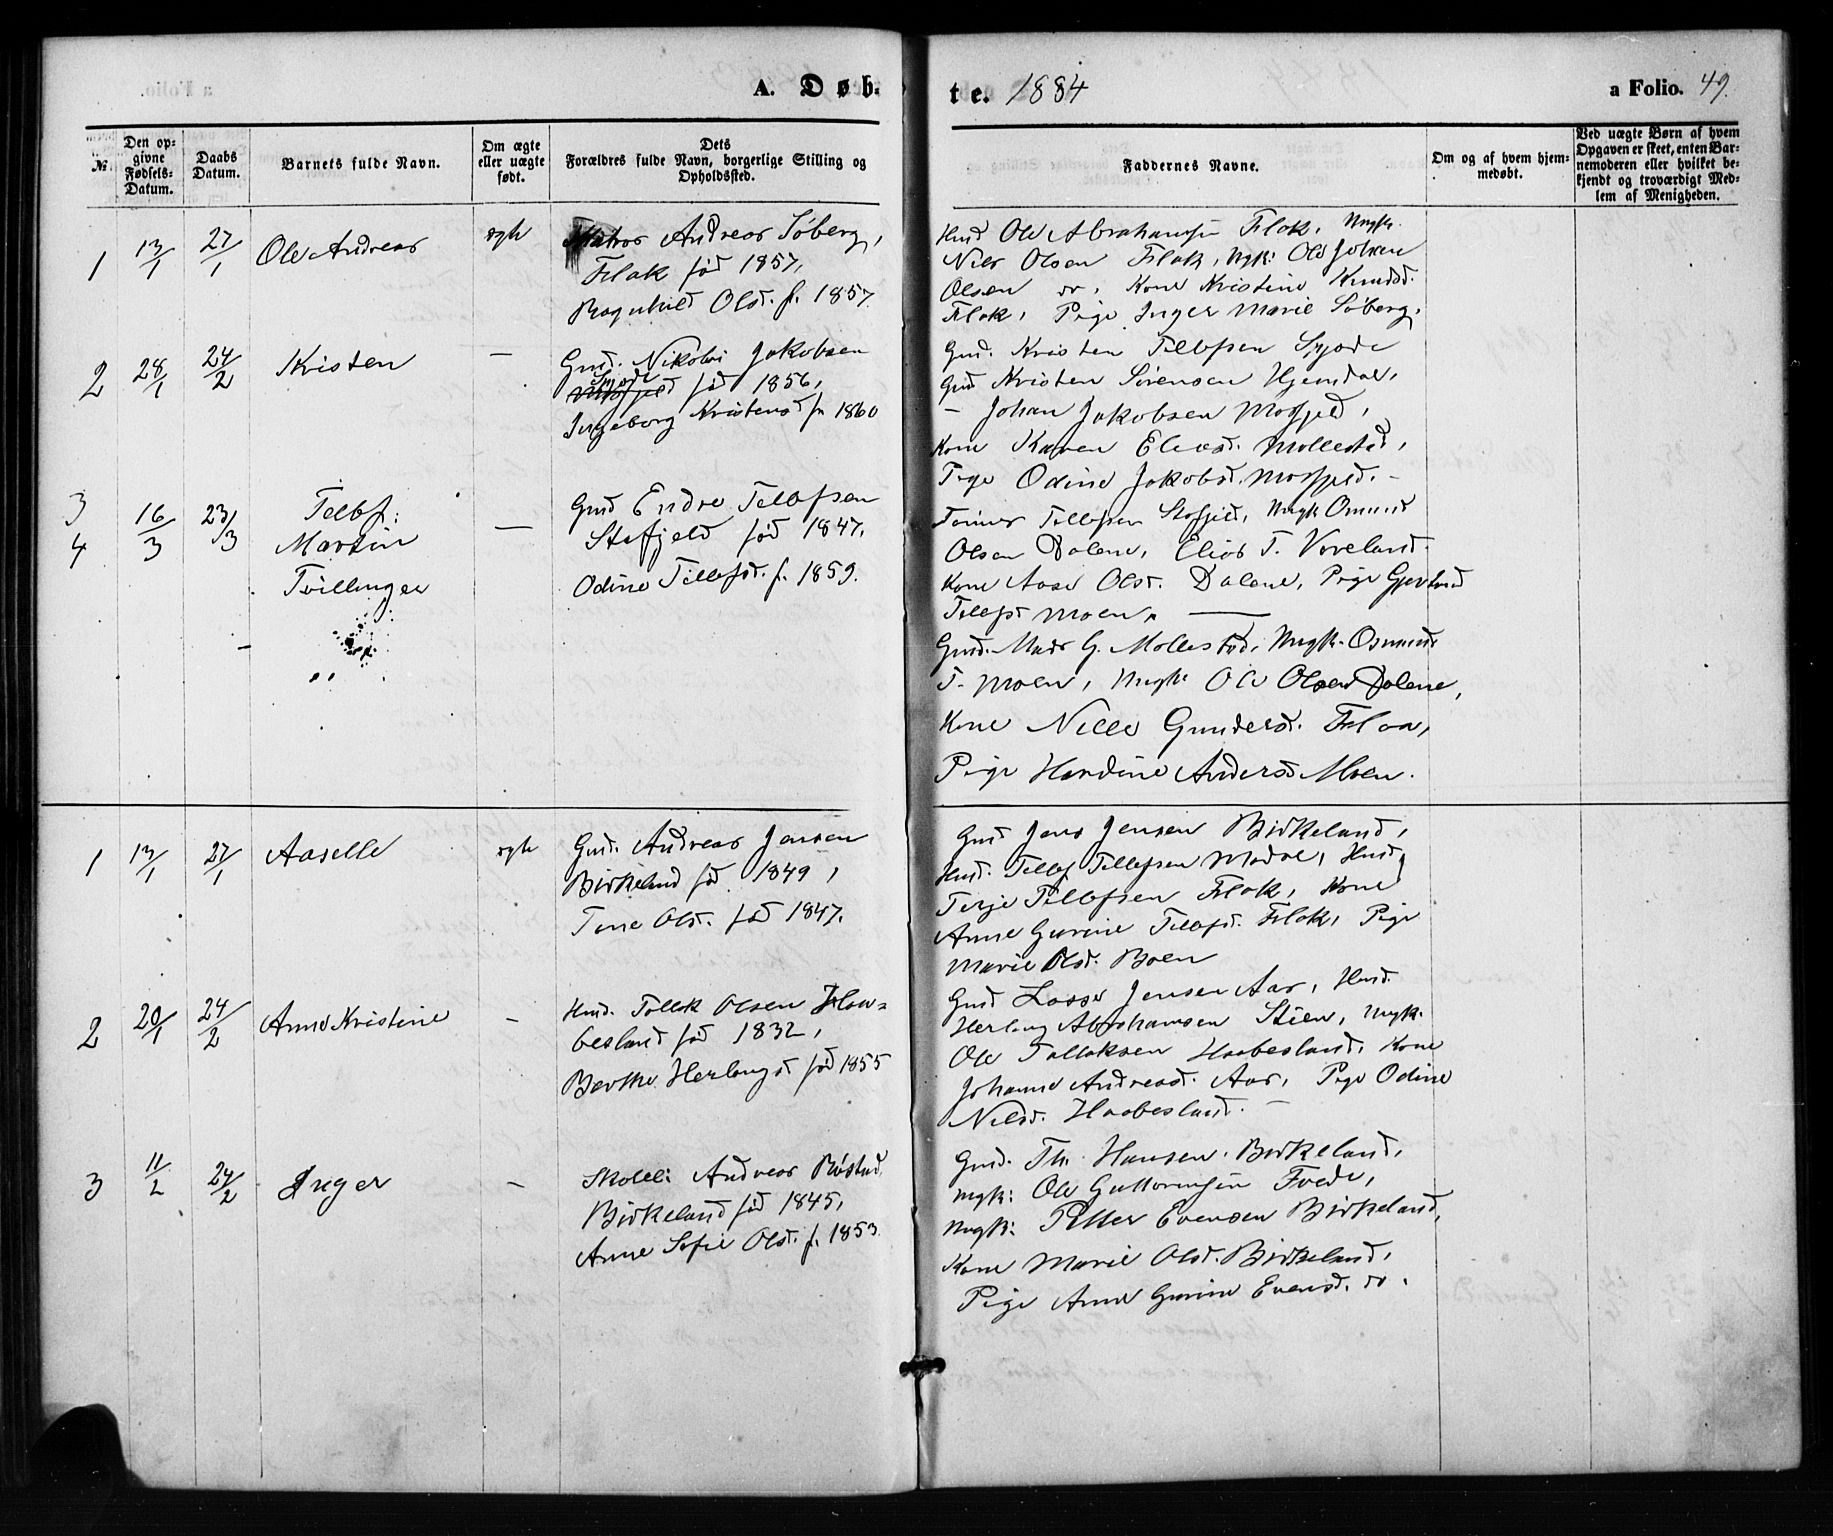 A. Døb-
te. 1884
a Folio. 49.
№
Den op-
givne
Fødsels-
Datum.
Daabs
Datum.
Barnets fulde Navn.
Om ægte
eller uægte
født.
Dets
Forældres fulde Navn, borgerlige Stilling og
Opholdssted.
Faddernes Navne.
Om og af hvem hjem-
medøbt.
Ved uægte Børn af hvem
Opgaven er skeet, enten Bar-
nemoderen eller hvilket be-
kjendt og troværdigt Med-
lem af Menigheden.
1 13/1 27/1 Ole Andreas ægte
Matros Andreas Søberg,
Flak fød 1857,
Ragnhild Olsd. f. 1857
Husd Ole Abrahamsen Flak, Ungk.
Nils Olsen Flak, Ugk: Ole Johan
Olsen do, Kone Kristine Knudsd.
Flak, Pige Inger Marie Søberg,
2 28/1 24/2 Kristen —
Gmd. Nikolai Jakobsen
fød 1856,
Ingeborg Kristensd f. 1860
Gmd. Kristen Tellefsen
Gmd Kristen Sørensen Hjemdal,
— Johan Jakobsen Mosfjeld,
Kone Karen Eliasd. Mollestad,
Pige Odine Jakobsd. Mosfjeld. -
3
4
16/3 23/3 Tellef:
Martin —
Tvillinger
Gmd Endre Tellefsen
Stofjeld fød 1847,
Odine Tellefsd. f. 1859.
Tellefsen Stofjeld, Ungk Osmund
Olsen Dalene, Elias T. Væveland
Kone Aase Olsd. Dalene, Pige Gjertrud
Tellefsd Moen, —
Gmd. Mads G. Mollestad, Ungk. Osmund
T. Moen, Ungk Ole Olsen Dalene,
Kone Nille Gundersd. Floa,
Pige Handine Andersd Moen.
1 13/1 27/1 Aaselle ægte
Gmd. Andreas Jensen
Birkeland fød 1849,
Tone Olsd. fød 1847.
Gmd Jens Jensen Birkeland,
Husd. Tellef Tellefsen Modal, Husd
Terje Tellefsen Flak, Kone
Anne Gurine Tellefsd. Flak, Pige
Marie Olsd. Boen
2 20/1 24/2 Anne Kristine —
Husd. Tollak Olsen Haa-
besland fød 1832,
Berthe Herlaugsd fød 1855
Gmd Lasse Jensen Aas, Husd.
Herlaug Abrahamsen Stien, Ungk.
Ole Tollaksen Haabesland, Kone
Johanne Andreasd. Aas, Pige Odine
Nilsd. Haabesland. —
3 11/2 24/2 Inger —
Skolel: Andreas Røstad
Birkeland fød 1845,
Anne Sofie Olsd. f. 1853.
Gmd. Th. Hansen Birkeland,
Ungk: Ole Guttormsen
Ungk: Petter Evensen Birkeland,
Kone Marie Olsd. Birkeland,
Pige Anne Gurine Evensd. do.